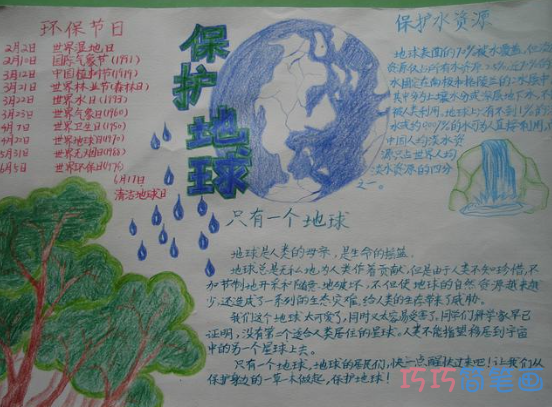 环保节日
2月2日 世界湿地日
2月10日 国际气象节(1991)
3月12日 中国植树节(1979)
3月21日 世界林业节(森林日)
3月22日 世界水日(1993)
3月23日 世界气象日(1960)
4月7日 世界卫生日(1950)
4月22日 世界地球日(1970)
5月31日 世界无烟日(1988)
6月5日 世界环保日(1974)
6月17日
清洁地球日
保护地球
保护水资源
地球表面的
被人类利用,地球上有不到1%的
中国人均淡水资
源只占世界人均
淡水资源的四分
之一。
只有一个地球
地球是人类的母亲,是生命的摇篮。
地球总是无私地为人类作着贡献,但是由于人类不知珍惜,不
加节制地开采和随意地破坏,不但使地球的自然资源越来越
少,还造成了一系列的生态灾难,给人类的生存带来了威胁。
我们这个地球太可爱了,同时又太容易受害了,同学们科学家早已
证明,没有第二个适合人类居住的星球。人类不能指望移居到宇宙
中的另一个星球上去。
只有一个地球,地球的居民们,快一点醒过来吧!让我们从
保护身边的一草一木做起,保护地球!
巧巧简笔画